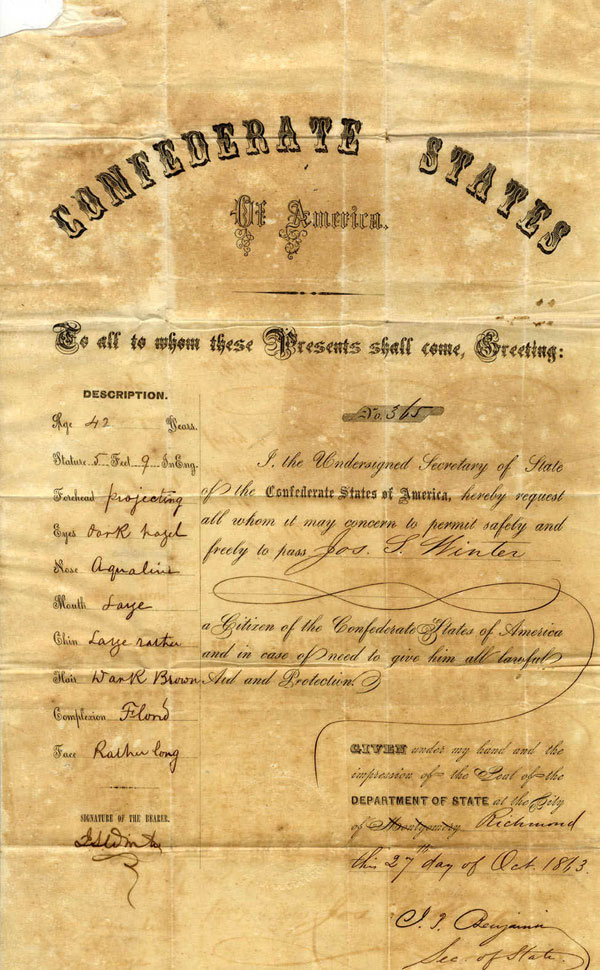 CONFEDERATE STATES
Of America.
To all to whom these Presents shall come, Greeting:
DESCRIPTION.
Age 42 Years.
Stature 5 Feet 9 In Eng.
Forehead projecting
Eyes dark hazel
Nose Aqualine
Mouth Large
Chin Large rather
Hair Dark Brown
Complexion Florid
Face Rather long
SIGNATURE OF THE BEARER.
No. 365
I, the Undersigned Secretary of State
of the Confederate States of America, hereby request
all whom it may concern to permit safely and
freely to pass Jos. S. Winter
a Citizen of the Confederate States of America
and in case of need to give him all lawful
Aid and Protection.
GIVEN under my hand and the
impression of the Seal of the
DEPARTMENT OF STATE at the City
of Montgomery Richmond
this 27th day of Oct. 1863.
J. P. Benjamin
Sec. of State.